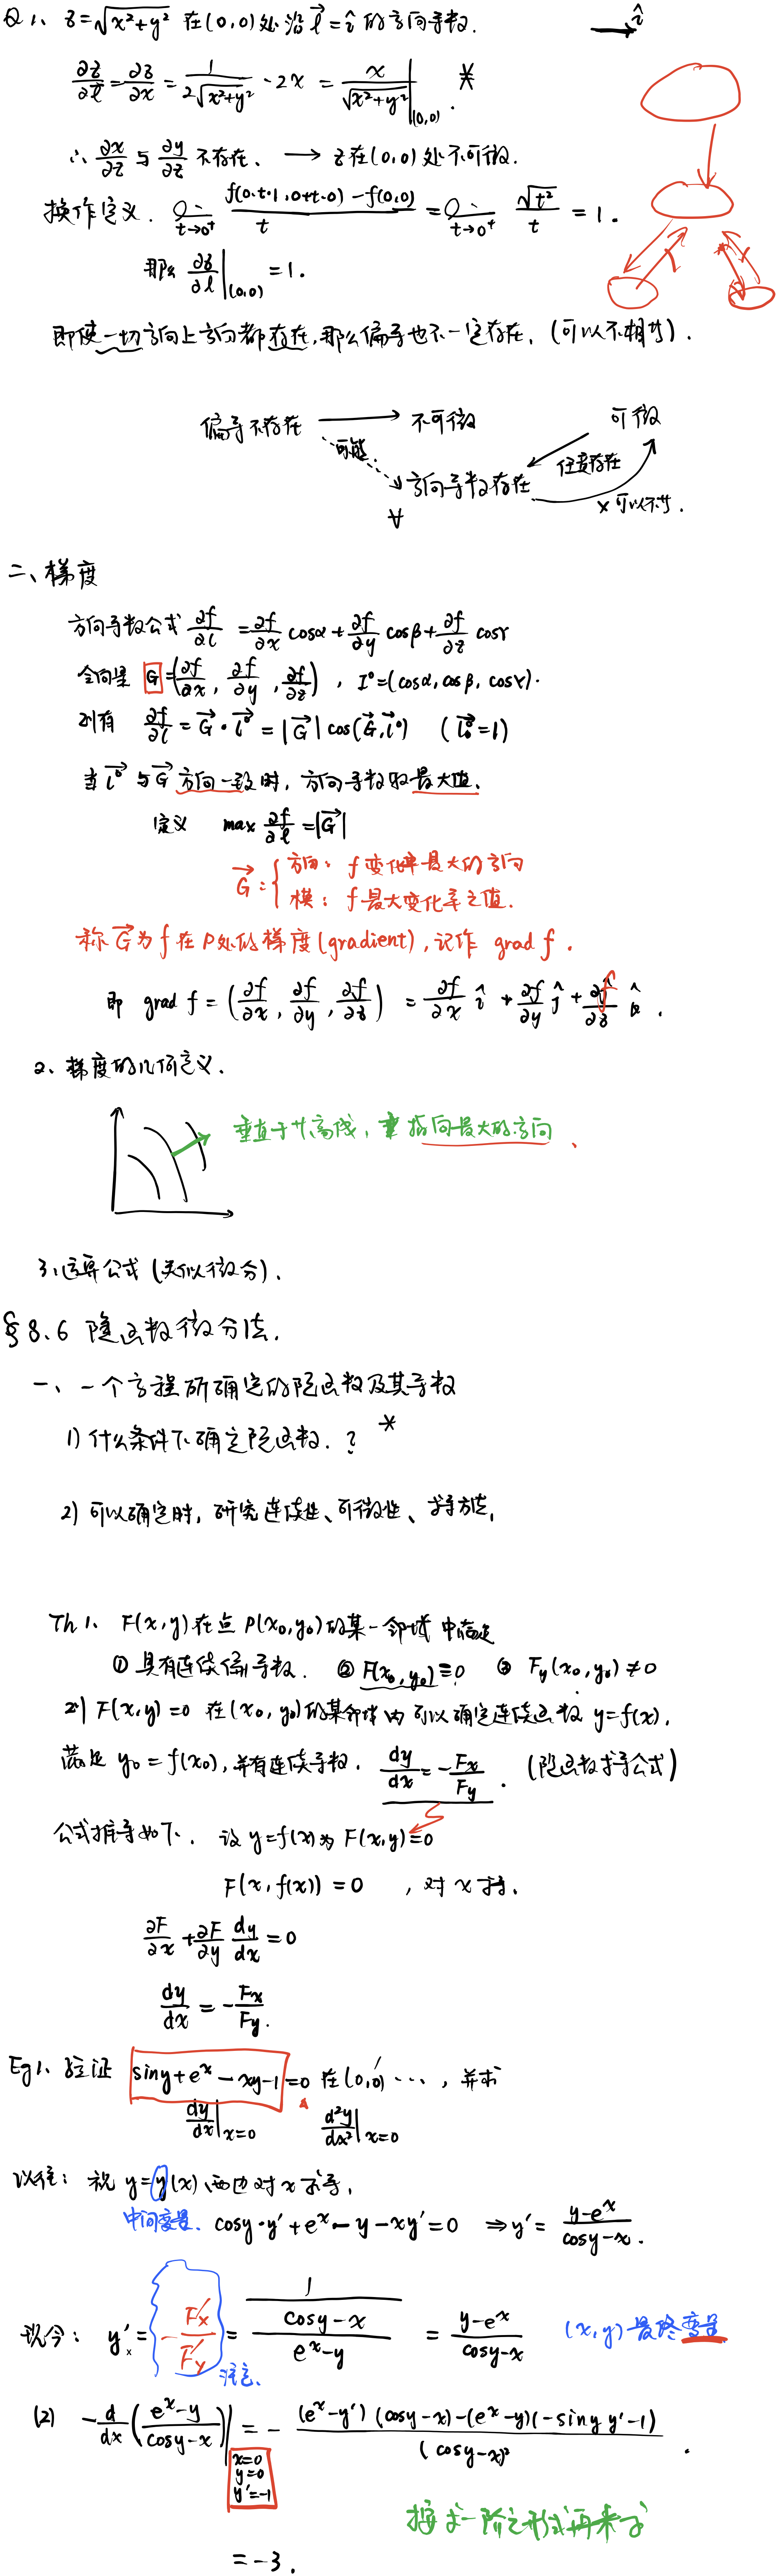 Q 1、 z=√(x²+y²) 在(0,0)处沿 l⃗=î 的方向导数.
î
∂z/∂l⃗ = ∂z/∂x = 1/(2√(x²+y²)) · 2x = x/√(x²+y²) |(0,0) . ⚹
∴ ∂x/∂z 与 ∂y/∂z 不存在、 → z在(0,0)处不可微.
t→0⁺ (f(0+t·1, 0+t·0) - f(0,0))/t = t→0⁺ √t²/t = 1.
那么 ∂z/∂l |(0,0) = 1.
即使一切方向上方向都存在,那么偏导也不一定存在, (可以不相等).
偏导不存在 → 不可微 可微
可能. 任意存在
方向导数存在 × 可以不 .
∀
二、梯度
方向导数公式 ∂f/∂l = ∂f/∂x cosα + ∂f/∂y cosβ + ∂f/∂z cosγ
令向量 G=(∂f/∂x, ∂f/∂y, ∂f/∂z), l°=(cosα, cosβ, cosγ).
则有 ∂f/∂l = G⃗·l⃗° = |G⃗| cos(G⃗, l⃗°) (l⃗°=1)
当 l⃗° 与 G⃗ 方向一致时, 方向导数取最大值.
定义 max ∂f/∂l = |G⃗|
G⃗: { 方向: f变化率最大的方向
模: f最大变化率之值.
称 G⃗ 为 f 在 P处的梯度(gradient), 记作 grad f .
即 grad f = (∂f/∂x, ∂f/∂y, ∂f/∂z) = ∂f/∂x î + ∂f/∂y ĵ + ∂f/∂z k̂ .
2、梯度的几何意义.
垂直于等高线, 指向最大的方向、
3、运算公式(类似微分).
§8.6 隐函数微分法.
一、一个方程所确定的隐函数及其导数
1) 什么条件下确定隐函数. ? ⚹
2) 可以确定时, 研究连续性、可微性、求导方法,
Th 1、 F(x,y)在点 P(x₀,y₀)的某一邻域中满足
① 具有连续偏导数. ② F(x₀,y₀)≡0 ③ F_y(x₀,y₀)≠0
F(x,y)=0 在(x₀,y₀)的某邻域内可以确定连续函数 y=f(x),
满足 y₀=f(x₀), 并有连续导数. dy/dx = -Fx/Fy . (隐函数求导公式)
公式推导如下. 设 y=f(x)为 F(x,y)=0
F(x,f(x))=0 , 对x求导.
∂F/∂x + ∂F/∂y dy/dx = 0
dy/dx = -Fx/Fy.
Eg1、验证 siny+e^x-xy-1=0 在(0,0) ···, 并求
dy/dx |x=0 d²y/dx² |x=0
以往: 视 y=y(x),两边对x求导,
中间变量. cosy·y'+e^x-y-xy'=0 ⇒ y'=(y-e^x)/(cosy-x).
现今: y'x = -F'x/F'y = 1/((cosy-x)/(e^x-y)) = (y-e^x)/(cosy-x) (x,y)最终变量
注意.
(2) -d/dx((e^x-y)/(cosy-x)) | x=0 y=0 y'=-1 = - ((e^x-y')(cosy-x)-(e^x-y)(-siny y'-1))/(cosy-x)² .
按求一阶之形式再来求
=-3.